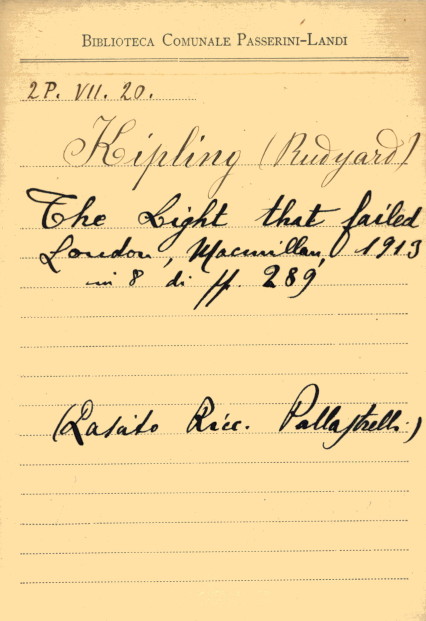 BIBLIOTECA COMUNALE PASSERINI-LANDI
2P. VII. 20.
Kipling (Rudyard)
The Light that failed
London, Macmillan, 1913
in 8 di pp. 289
(Lascito Ricc. Pallastrelli.)